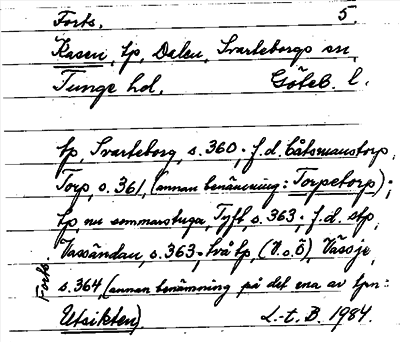 Forts. 5.
Kasen, tp, Dalen, Svarteborgs sn,
Tunge hd. Göteb. l.
tp, Svarteborg, s. 360; f.d. båtsmanstorp,
Torp, s. 361, (annan benämning: Torpetorp);
tp, nu sommarstuga, Tyft, s. 363; f.d. stp,
Vassändan, s. 363; två tp, (V. o. Ö), Vässje,
s. 364, (annan benämning på det ena av tpn:
Utsikten). L-t. B. 1984.
Forts.